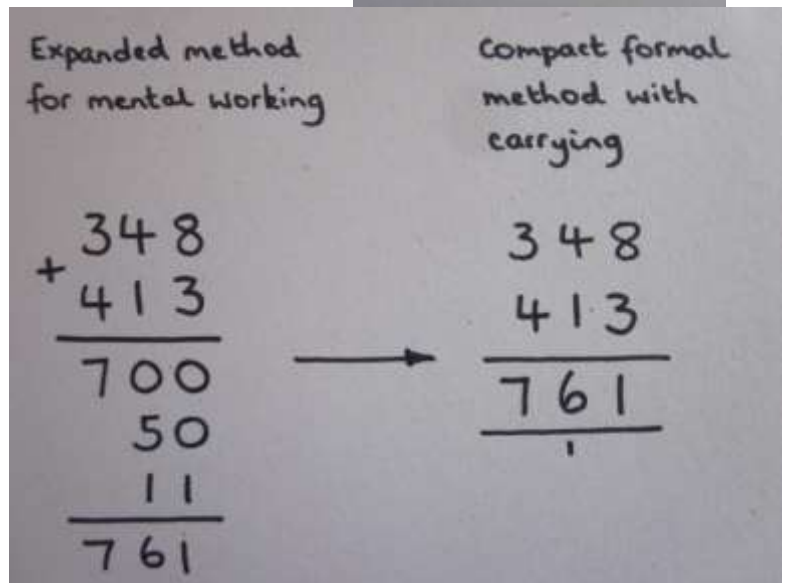 Expanded method
for mental working
348
+
413
700
50
11
761
Compact formal
method with
carrying
348
413
761
1